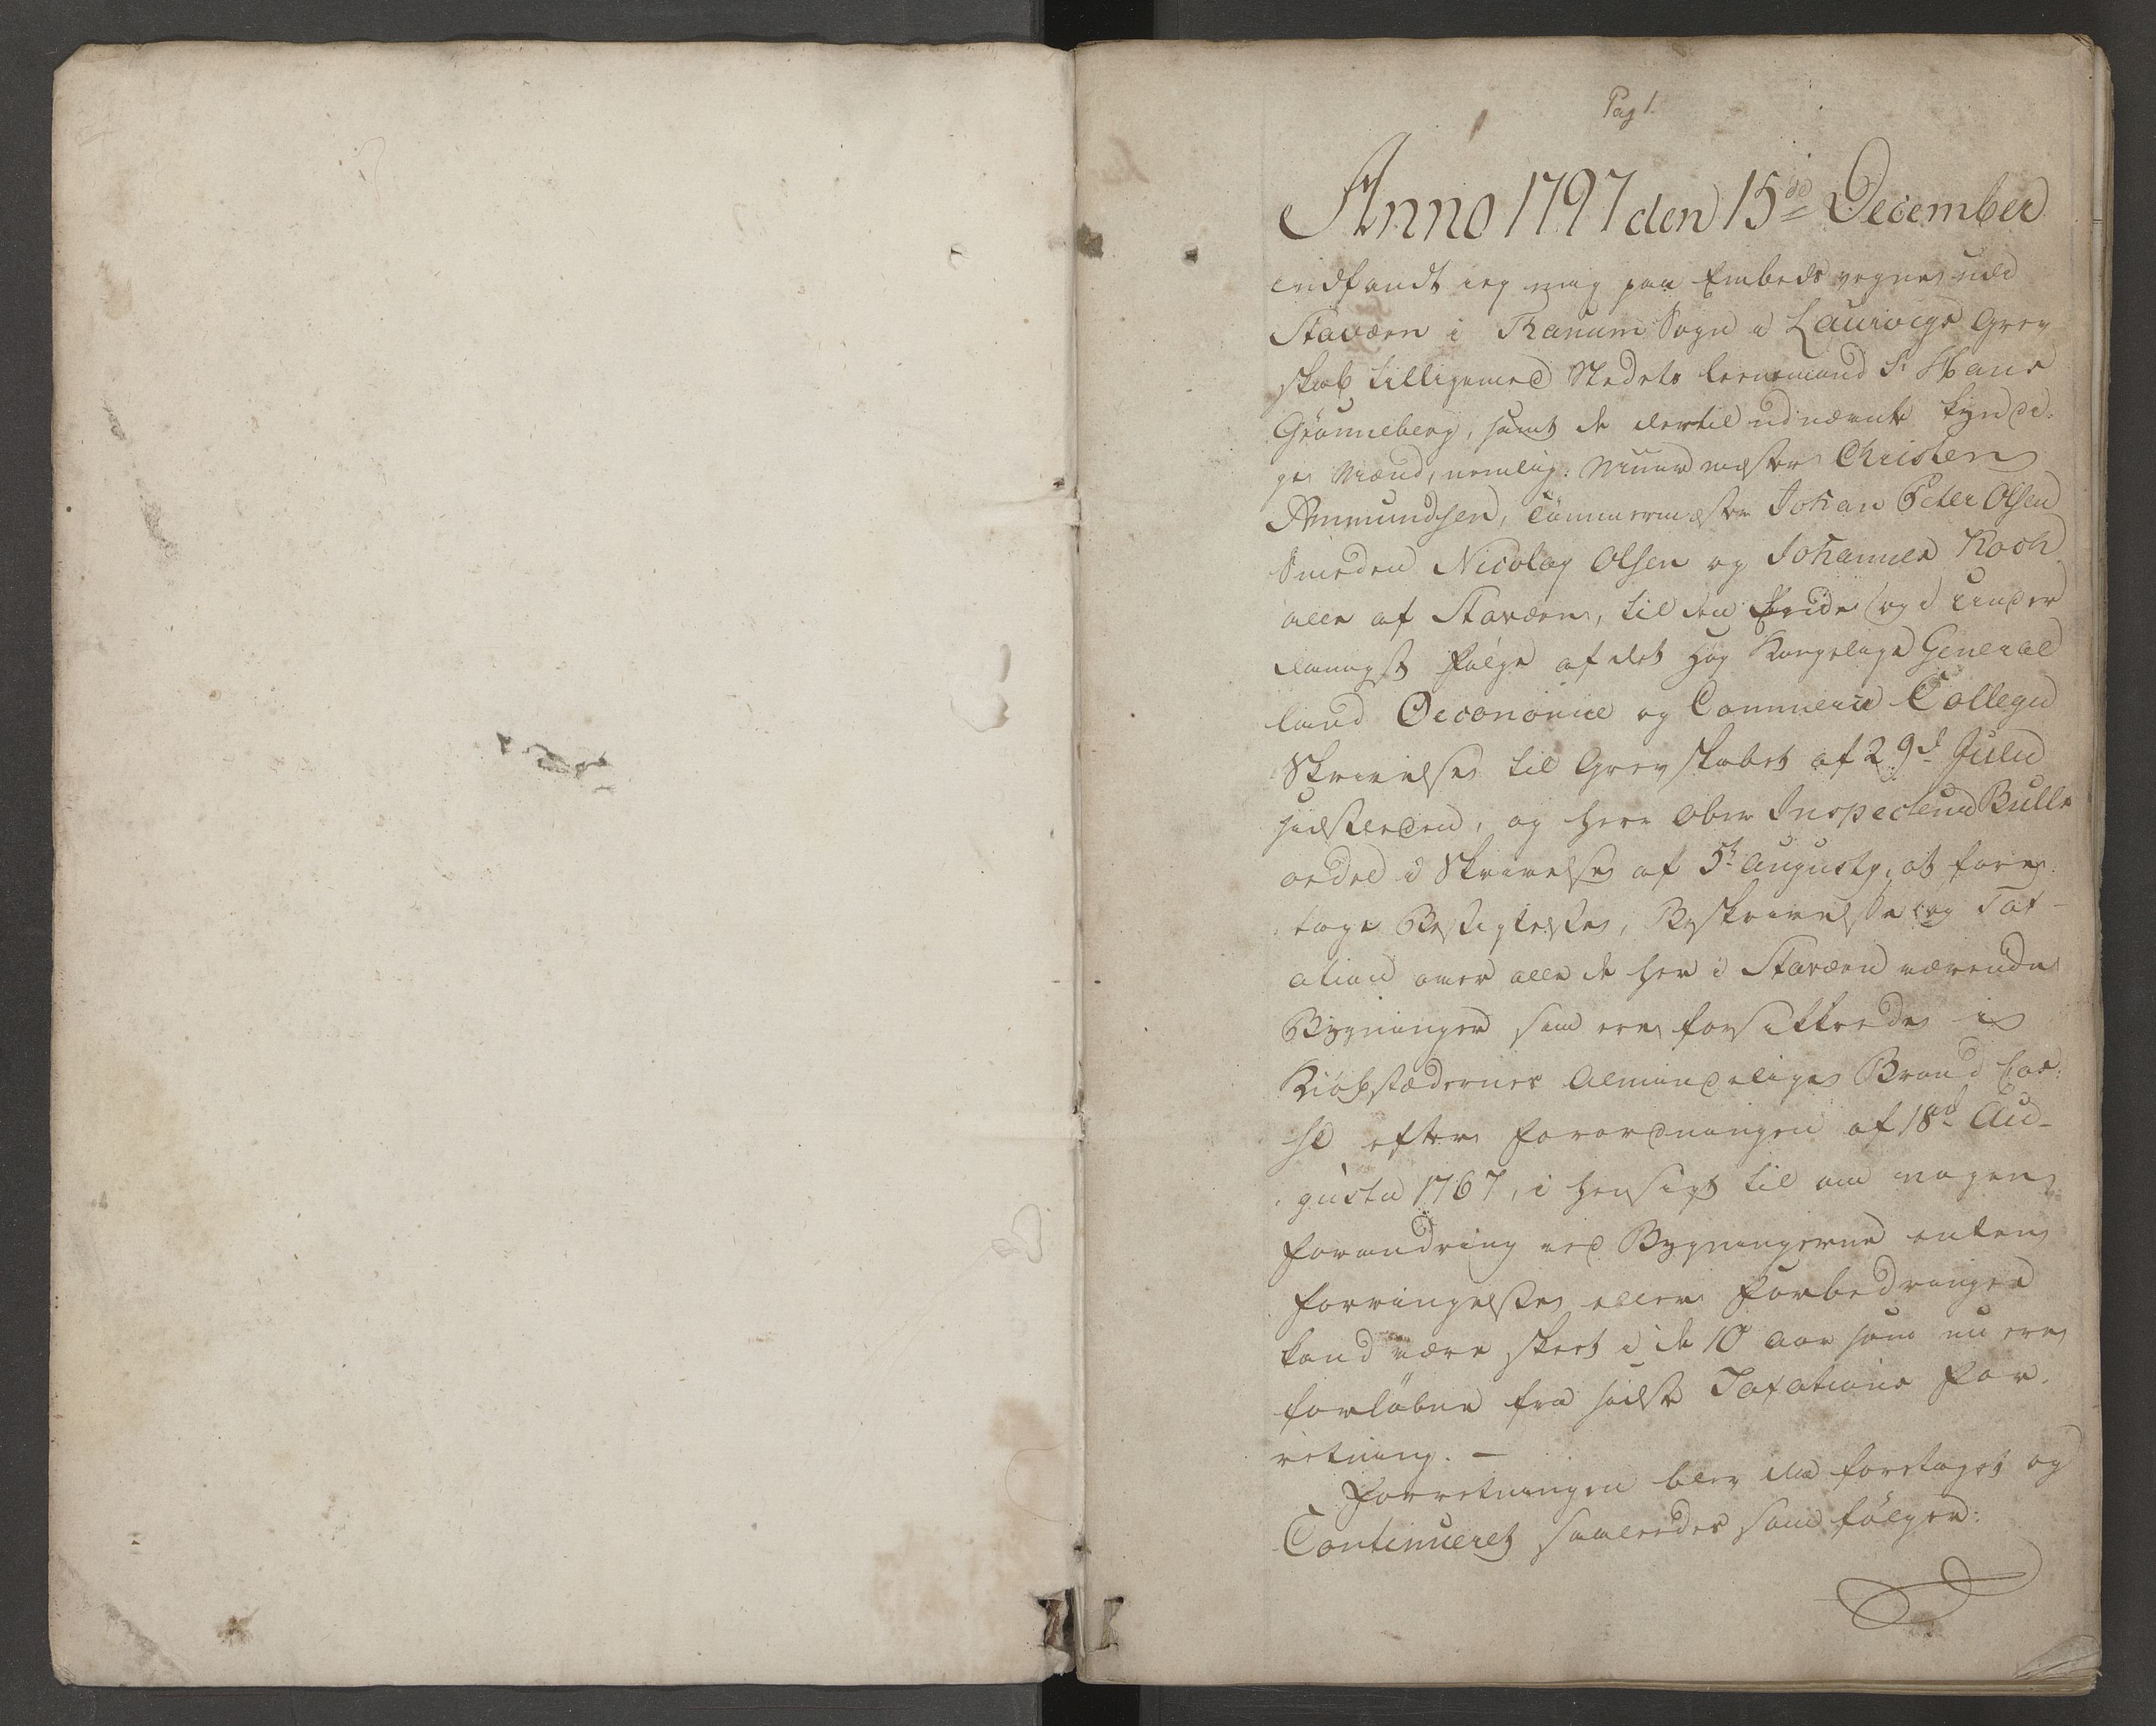 Pag 1.
Anno 1797 den 15de December
indfandt ieg mig paa Embeds vegne udi
Staværn i Tanum Sogn i Laurvigs Grev
skab tilligemed Stedets Leensmand Sr Hans
Grønneberg, samt de dertil udnævnte kyndi-
ge Mænd, nemlig: Muurmester Christen
Ammundsen, Tømmermæster Johan Peter Olsen
Smeden Nicolay Olsen og Johannes Koch
alle af Staværn, til den Ende og i under
danigst følge af det høy Kongelige General
land Oeconomie og Commerce Collegii
Skrivelse til Grevskabet af 29d Julii
sidstleden, og Herr Ober Inspecteur Bulls
ordre i Skrivelse af 5t Augusty, at fore-
tage Besigtelse, Beskrivelse og Tax-
ation over alle de her i Staværn værende
Bygninger som ere forsikkrede i
Kiøbstædernes Almindelige Brand Cas-
se efter Forordningen af 18d Au-
gusti 1767, i hensigt til om nogen
forandring ved Bygningerne enten
forringelse eller Forbedringer
kand være skeet i de 10 Aar som nu ere
forløbne fra sidste Taxations For-
retning. —
Forretningen blev da foretaget og
Continueret saaledes som følger: